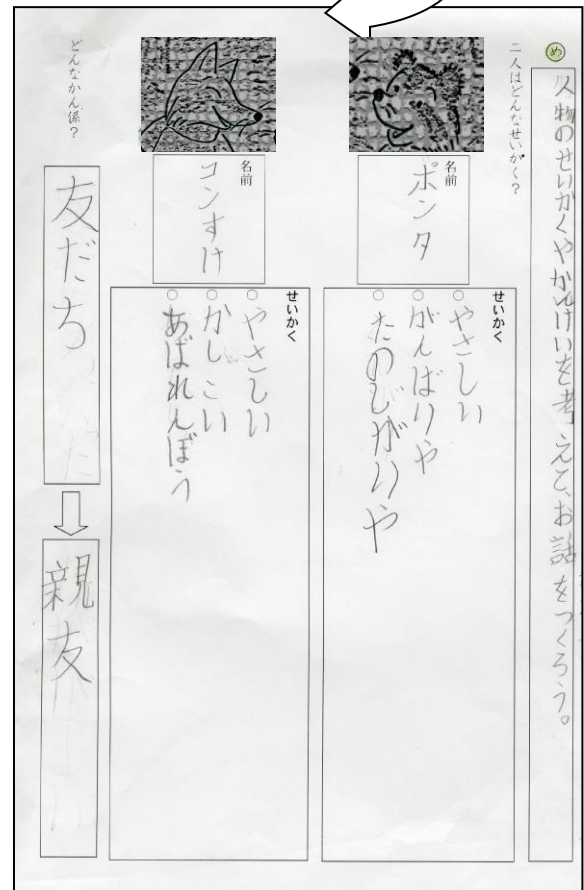 め
人物のせいかくやかんけいを考えて、お話をつくろう。
二人はどんなせいかく？
名前
ポンタ
せいかく
○やさしい
○がんばりや
○たのしがりや
名前
コンすけ
せいかく
○やさしい
○かしこい
○あばれんぼう
どんなかん係？
友だち
親友